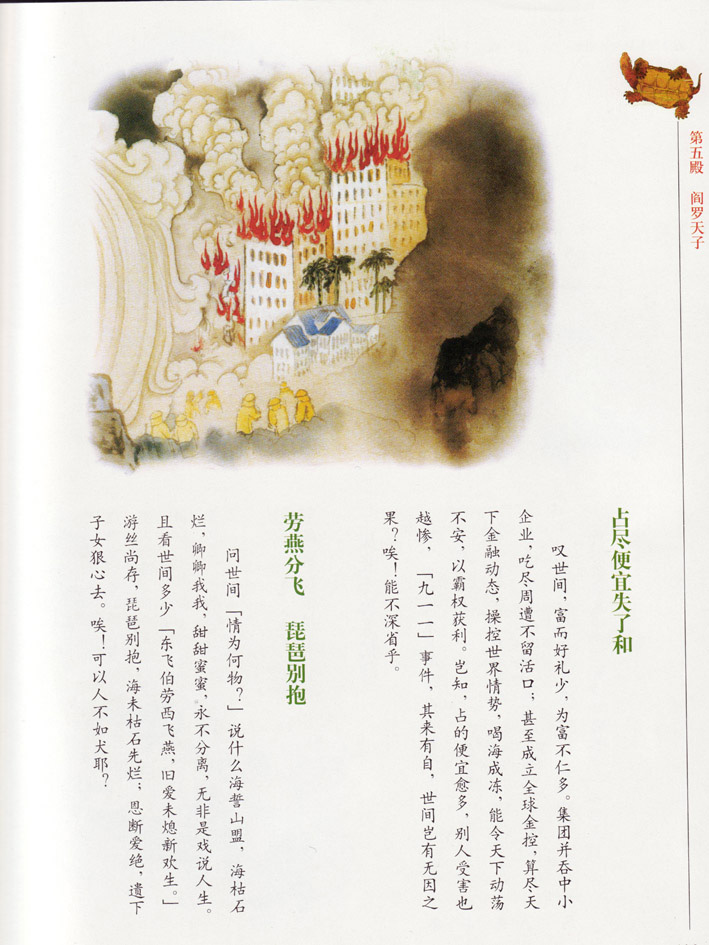 第五殿 阎罗天子
占尽便宜失了和
叹世间，富而好礼少，为富不仁多。集团并吞中小
企业，吃尽周遭不留活口；甚至成立全球金控，算尽天
下金融动态，操控世界情势，喝海成冻，能令天下动荡
不安，以霸权获利。岂知，占的便宜愈多，别人受害也
越惨，「九一一」事件，其来有自，世间岂有无因之
果？唉！能不深省乎。
劳燕分飞 琵琶别抱
问世间「情为何物？」说什么海誓山盟，海枯石
烂，卿卿我我，甜甜蜜蜜，永不分离，无非是戏说人生。
且看世间多少「东飞伯劳西飞燕，旧爱未熄新欢生。」
游丝尚存，琵琶别抱，海未枯石先烂；恩断爱绝，遗下
子女狠心去。唉！可以人不如犬耶？